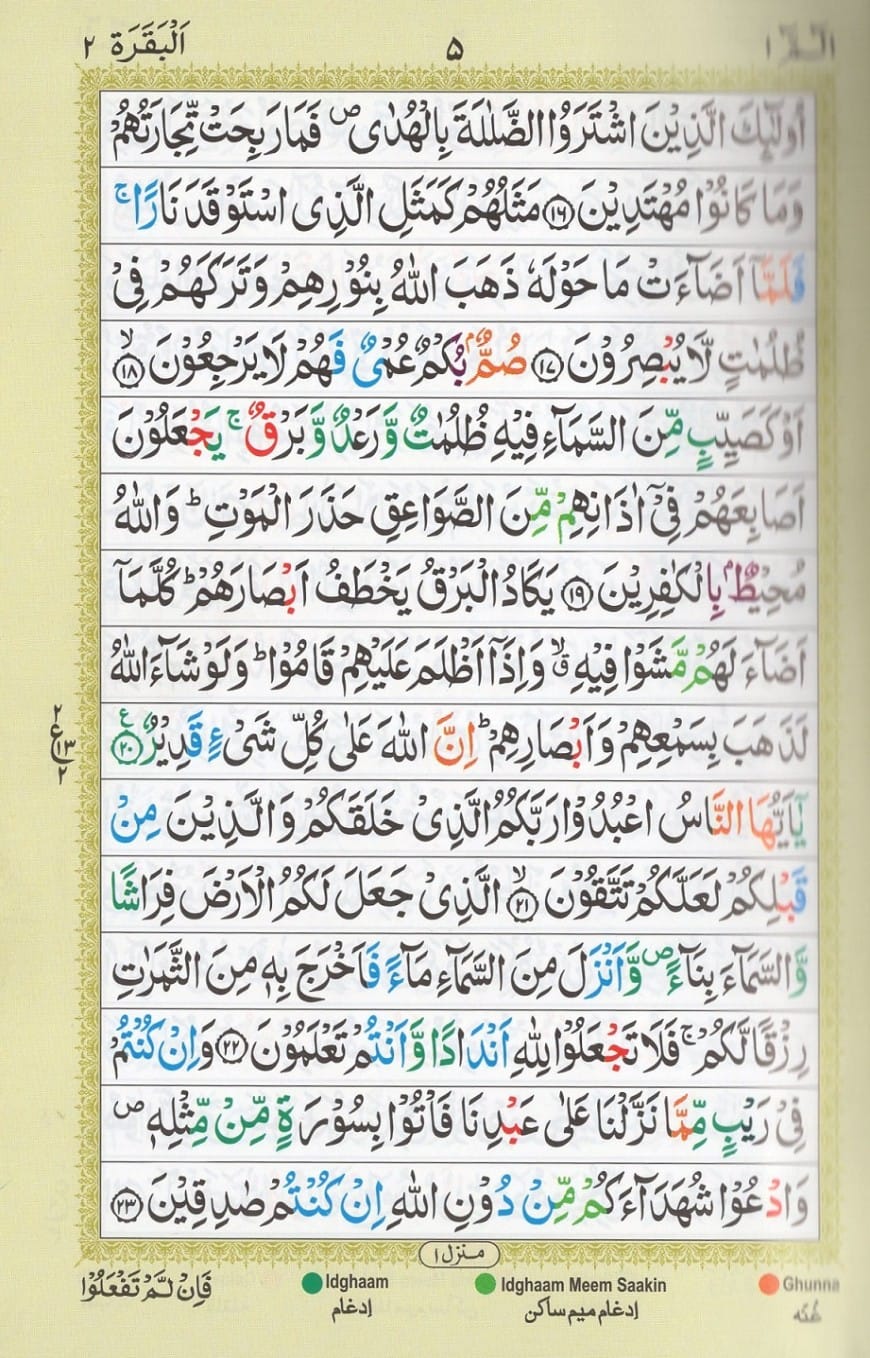 الٓمّٓ ١ ٥ اَلْبَقَرَة ٢
اُولٰٓئِكَ الَّذِيْنَ اشْتَرَوُا الضَّلٰلَةَ بِالْهُدٰى ۪ فَمَا رَبِحَتْ تِّجَارَتُهُمْ
وَمَا كَانُوْا مُهْتَدِيْنَ ﴿١٦﴾ مَثَلُهُمْ كَمَثَلِ الَّذِى اسْتَوْقَدَ نَارًا ۚ
فَلَمَّاۤ اَضَآءَتْ مَا حَوْلَهٗ ذَهَبَ اللّٰهُ بِنُوْرِهِمْ وَتَرَكَهُمْ فِىْ
ظُلُمٰتٍ لَّا يُبْصِرُوْنَ ﴿١٧﴾ صُمٌّۢ بُكْمٌ عُمْىٌ فَهُمْ لَا يَرْجِعُوْنَ ۙ﴿١٨﴾
اَوْ كَصَيِّبٍ مِّنَ السَّمَآءِ فِيْهِ ظُلُمٰتٌ وَّرَعْدٌ وَّبَرْقٌ ۚ يَجْعَلُوْنَ
اَصَابِعَهُمْ فِىْۤ اٰذَانِهِمْ مِّنَ الصَّوَاعِقِ حَذَرَ الْمَوْتِ ؕ وَاللّٰهُ
مُحِيْطٌۢ بِالْكٰفِرِيْنَ ﴿١٩﴾ يَكَادُ الْبَرْقُ يَخْطَفُ اَبْصَارَهُمْ ؕ كُلَّمَاۤ
اَضَآءَ لَهُمْ مَّشَوْا فِيْهِ ۙۗ وَاِذَاۤ اَظْلَمَ عَلَيْهِمْ قَامُوْا ؕ وَلَوْ شَآءَ اللّٰهُ
لَذَهَبَ بِسَمْعِهِمْ وَاَبْصَارِهِمْ ؕ اِنَّ اللّٰهَ عَلٰى كُلِّ شَىْءٍ قَدِيْرٌ ﴿٢٠﴾ ع
٢ ع ١٣ ٢
يٰۤاَيُّهَا النَّاسُ اعْبُدُوْا رَبَّكُمُ الَّذِىْ خَلَقَكُمْ وَالَّذِيْنَ مِنْ
قَبْلِكُمْ لَعَلَّكُمْ تَتَّقُوْنَ ۙ﴿٢١﴾ الَّذِىْ جَعَلَ لَكُمُ الْاَرْضَ فِرَاشًا
وَّالسَّمَآءَ بِنَآءً ۪ وَّاَنْزَلَ مِنَ السَّمَآءِ مَآءً فَاَخْرَجَ بِهٖ مِنَ الثَّمَرٰتِ
رِزْقًا لَّكُمْ ۚ فَلَا تَجْعَلُوْا لِلّٰهِ اَنْدَادًا وَّاَنْتُمْ تَعْلَمُوْنَ ﴿٢٢﴾ وَاِنْ كُنْتُمْ
فِىْ رَيْبٍ مِّمَّا نَزَّلْنَا عَلٰى عَبْدِنَا فَاْتُوْا بِسُوْرَةٍ مِّنْ مِّثْلِهٖ ۪
وَادْعُوْا شُهَدَآءَكُمْ مِّنْ دُوْنِ اللّٰهِ اِنْ كُنْتُمْ صٰدِقِيْنَ ﴿٢٣﴾
منزل ١
فَاِنْ لَّمْ تَفْعَلُوْا
Idghaam Idghaam Meem Saakin Ghunna
ادغام ادغام میم ساکن غنّه